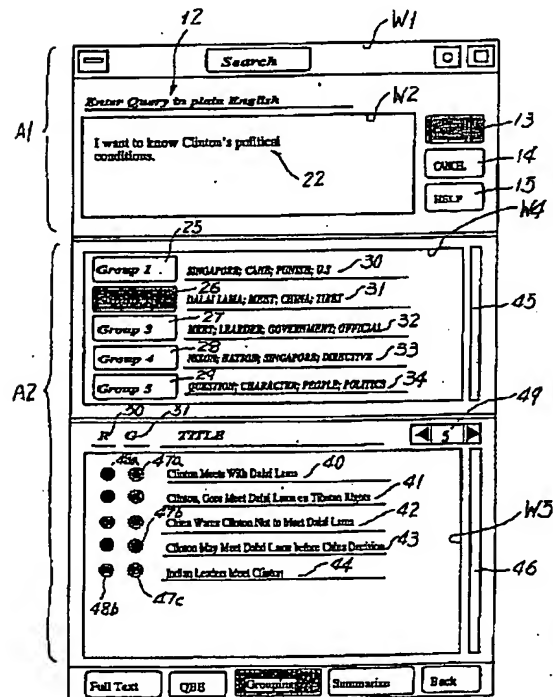 W1
Search
12
Enter Query in plain English
W2
A1
I want to know Clinton's political
conditions.
22
13
CANCEL 14
HELP 15
25
W4
Group 1 SINGAPORE; CANE; PUNISH; U.S 30
26 DALAI LAMA; MEET; CHINA; TIBET 31
27
Group 3 MEET; LEARDER; GOVERNMENT; OFFICIAL 32
45
28
Group 4 NIXON; NATION; SINGAPORE; DIRECTIVE 33
29
Group 5 QUESTION; CHARACTER; PEOPLE; POLITICS 34
A2
49
30 31
R G TITLE 5
47a
Clinton Meets With Dalai Lama 40
Clinton, Gore Meet Dalai Lama on Tibetan Rights 41
47b
China Warns Clinton Not to Meet Dalai Lama 42
W5
Clinton May Meet Dalai Lama before China Decision 43
Indian Leaders Meet Clinton 44
46
48b 47c
Full Text QBE Grouping Summarize Back